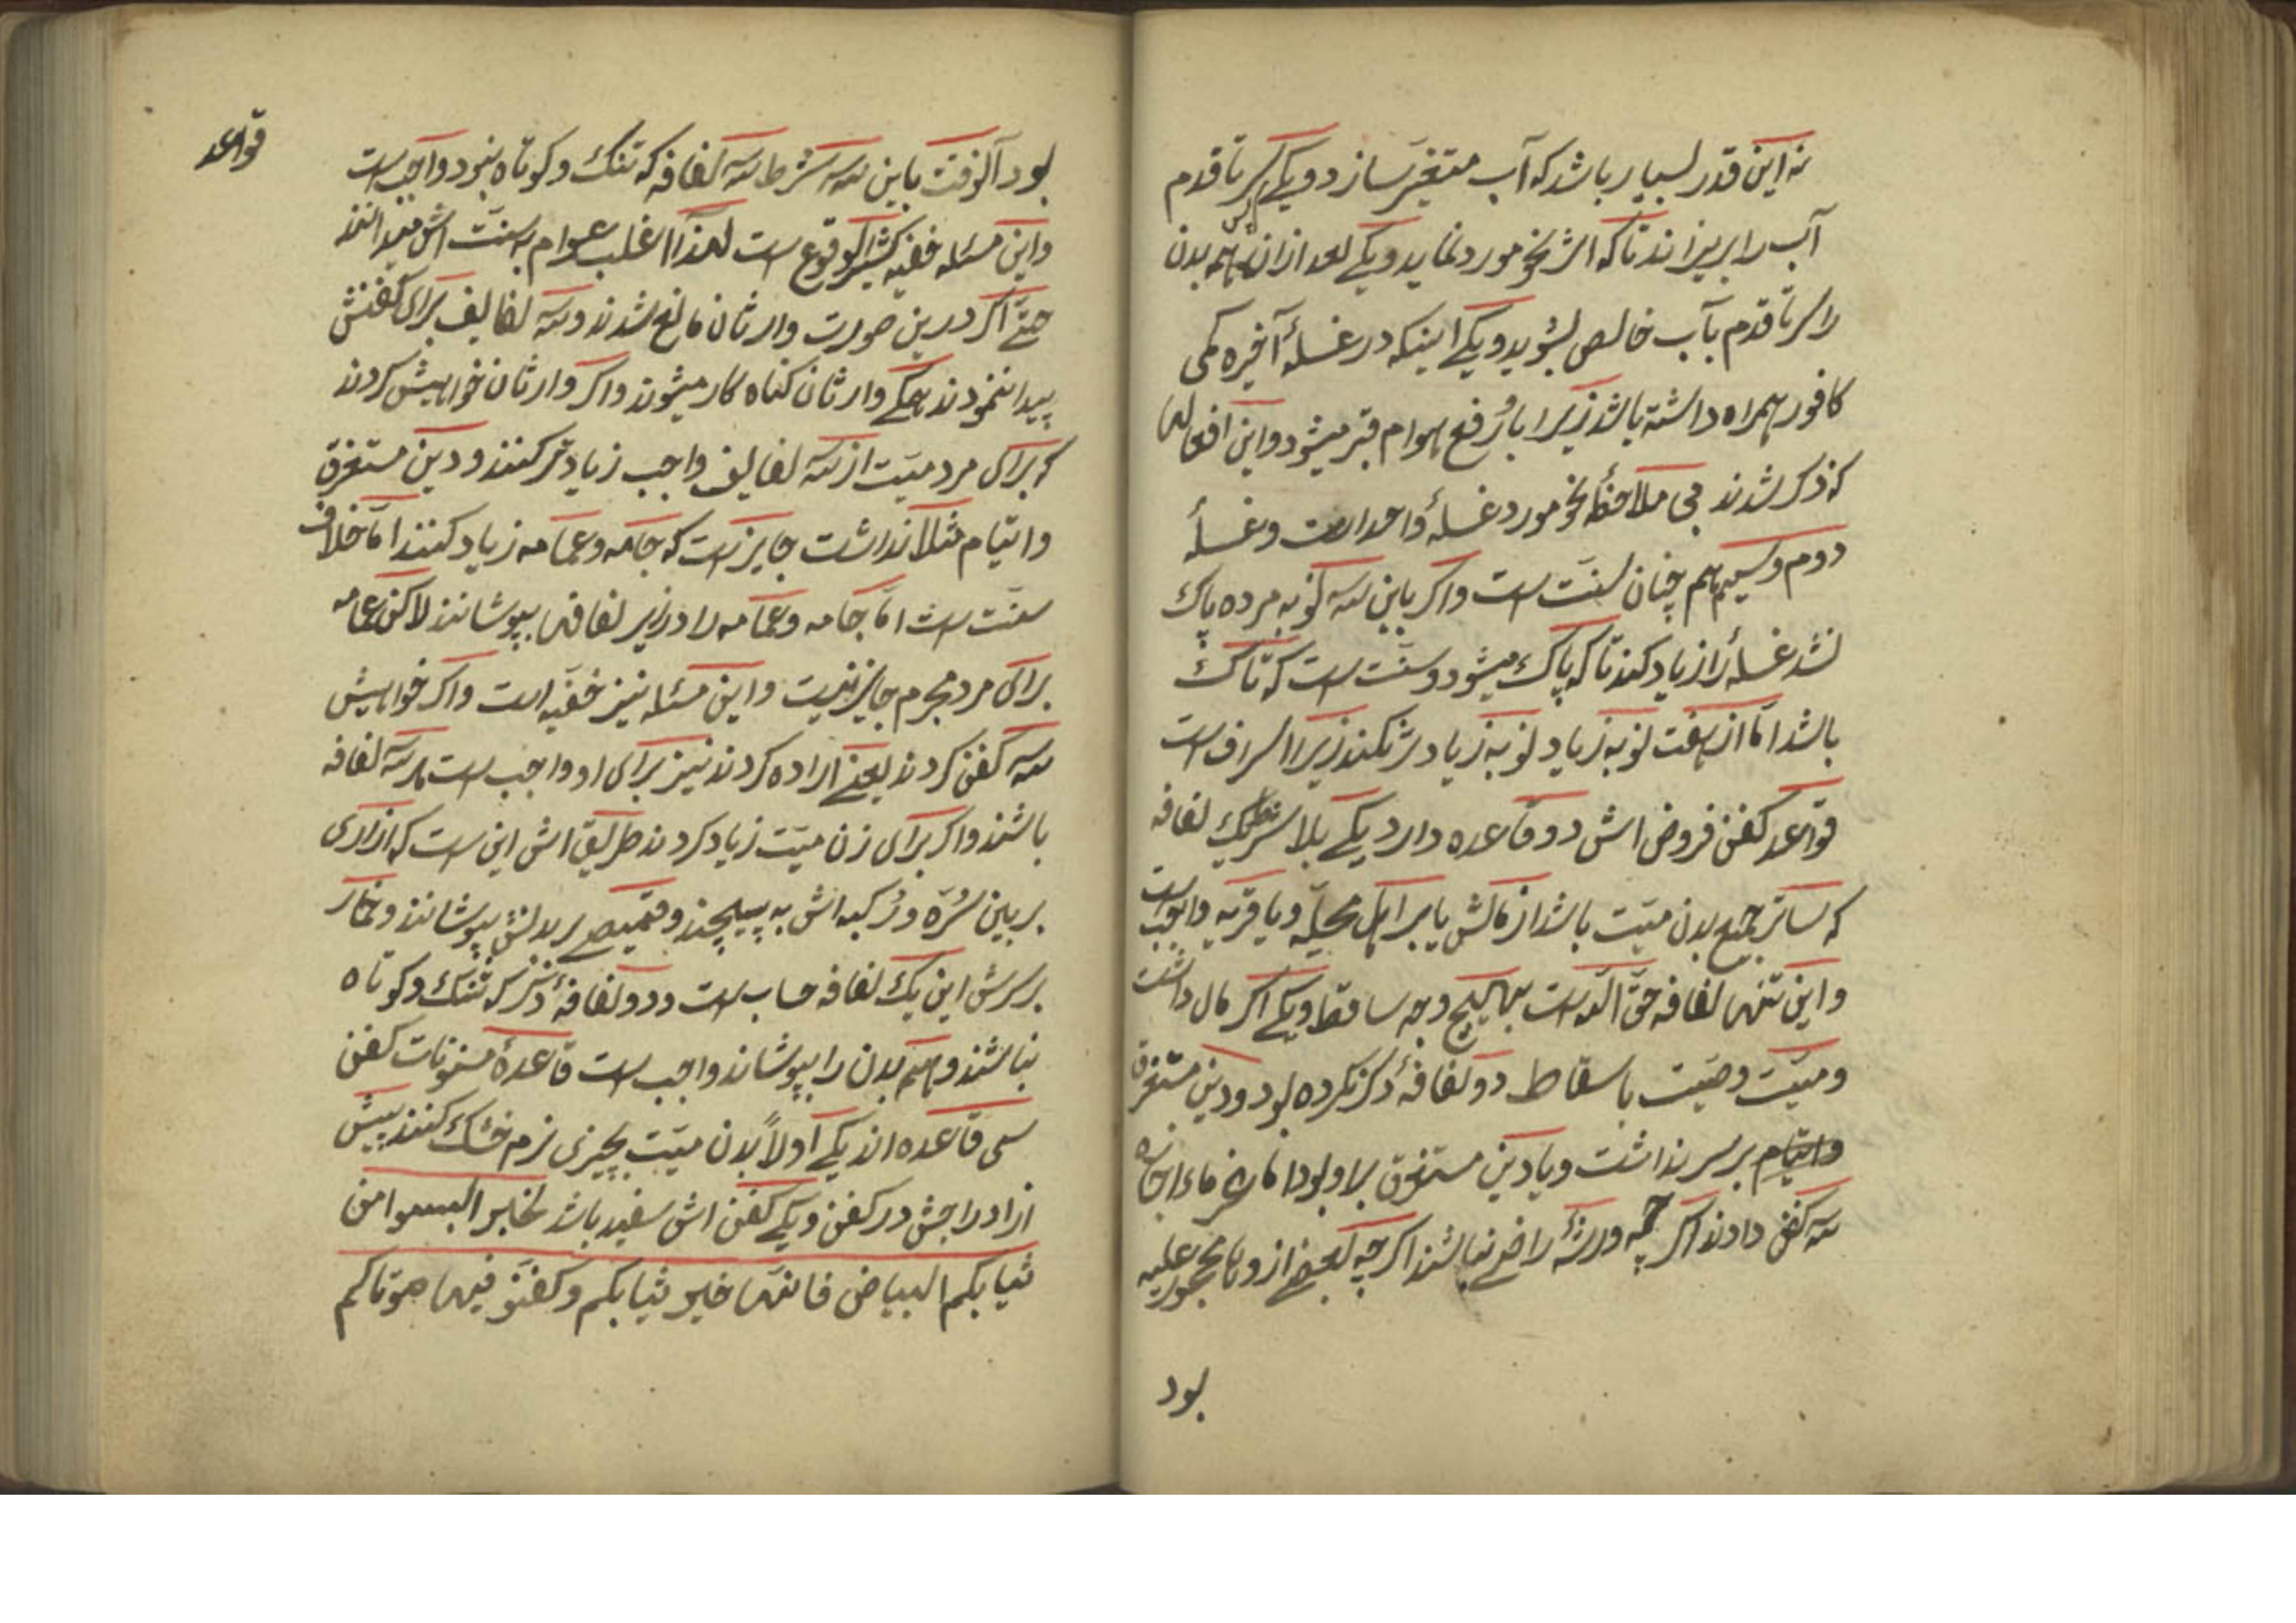 نه این قدر بسیار باشد که آب متغیر سازد و یکی سر تا قدم
آب را بریزاند تاکه اثر نحو مورد نماید و یکی بعد ازان همه بدن
را سر تا قدم بآب خالص بشوید و یکی اینکه در غسلهٔ آخیره کمی
کافور همراه داشته باشد زیرا باو رفع هوام قبر میشود و این افعالها
که ذکر شدند می ملاحظهٔ نحو مورد غسلهٔ واحد است و غسلهٔ
دوم و سیم هم چنان سنت است و اکر باین سه کونه مرده پاک
نشد غسله را زیاد کند تاکه پاک میشود و سنت است که تاک
باشد امّا از هفت نوبه زیاد نوبه زیادتر نکند زیرا اسراف است
قواعد کفن فروض اش دو قاعده دارد یکی بلا شرط یک لفافه
که ساتر جمیع بدن میّت باشد از مالش یا بر اهل محلّه و یا قریه واجب است
و این تنها لفافه حقّ اللّه است بهیچ وجه ساقط و یکی اکر مال داشت
و میّت وصیّت باسقاط دو لفافهٔ دکر نکرده بود و دین مستغرق
و ایتام بر سر نداشت و یا دین مستغرق بر او بود امّا غرماء اجازه
سه کفن دادند اکر چه ورثهٔ راضی نباشند اکر چه بعضی ازونا محجور علیه
بود
قواعد
بود آنوقت باین سه شرط سه لفافه که تنک و کوتاه نبود واجب است
و این مسئله خفیه کثیر الوقوع است لهذا اغلب عوام به سنّت اش میدانند
حتّی اکر درین صورت وارثان مانع شدند و سه لفالیف برای کفنش
پیدا ننمودند همکی وارثان کناه کار میشوند و اکر وارثان خواهیش کردند
که برای مرد میّت از سه لفالیف واجب زیادتر کنند و دین مستغرق
و ایتام مثلاً نداشت جایز است که جامه و عمامه زیاد کنند امّا خلاف
سنّت است امّا جامه و عمامه را در زیر لفافها بپوشانند لاکن عمامه
برای مرد محرم جایز نیست و این مسئله نیز خفیّه است و اکر خواهیش
سه کفن کردند یعنی اراده کردند نیز برای او واجب است هر سه لفافه
باشند و اکر برای زن میّت زیاد کردند طریق اش این است که ازاری
بر بین سُرّه و رُکبه اش به پیچند و قمیصی بر بدنش بپوشانند و خمار
بر سرش این یک لفافه حساب است و دو لفافهٔ دکر که تنک و کوتاه
نباشند و همه بدن را بپوشاند واجب است قاعدهٔ مسنونات کفن
سی قاعده اند یکی اولاً بدن میّت بچیزی نرم خشک کنند پیش
از ادراجش در کفن و یکی کفن اش سفید باشد لخبر البسوا من
ثیابکم البیاض فانّها خیر ثیابکم و کفّنو فیها موتاکم